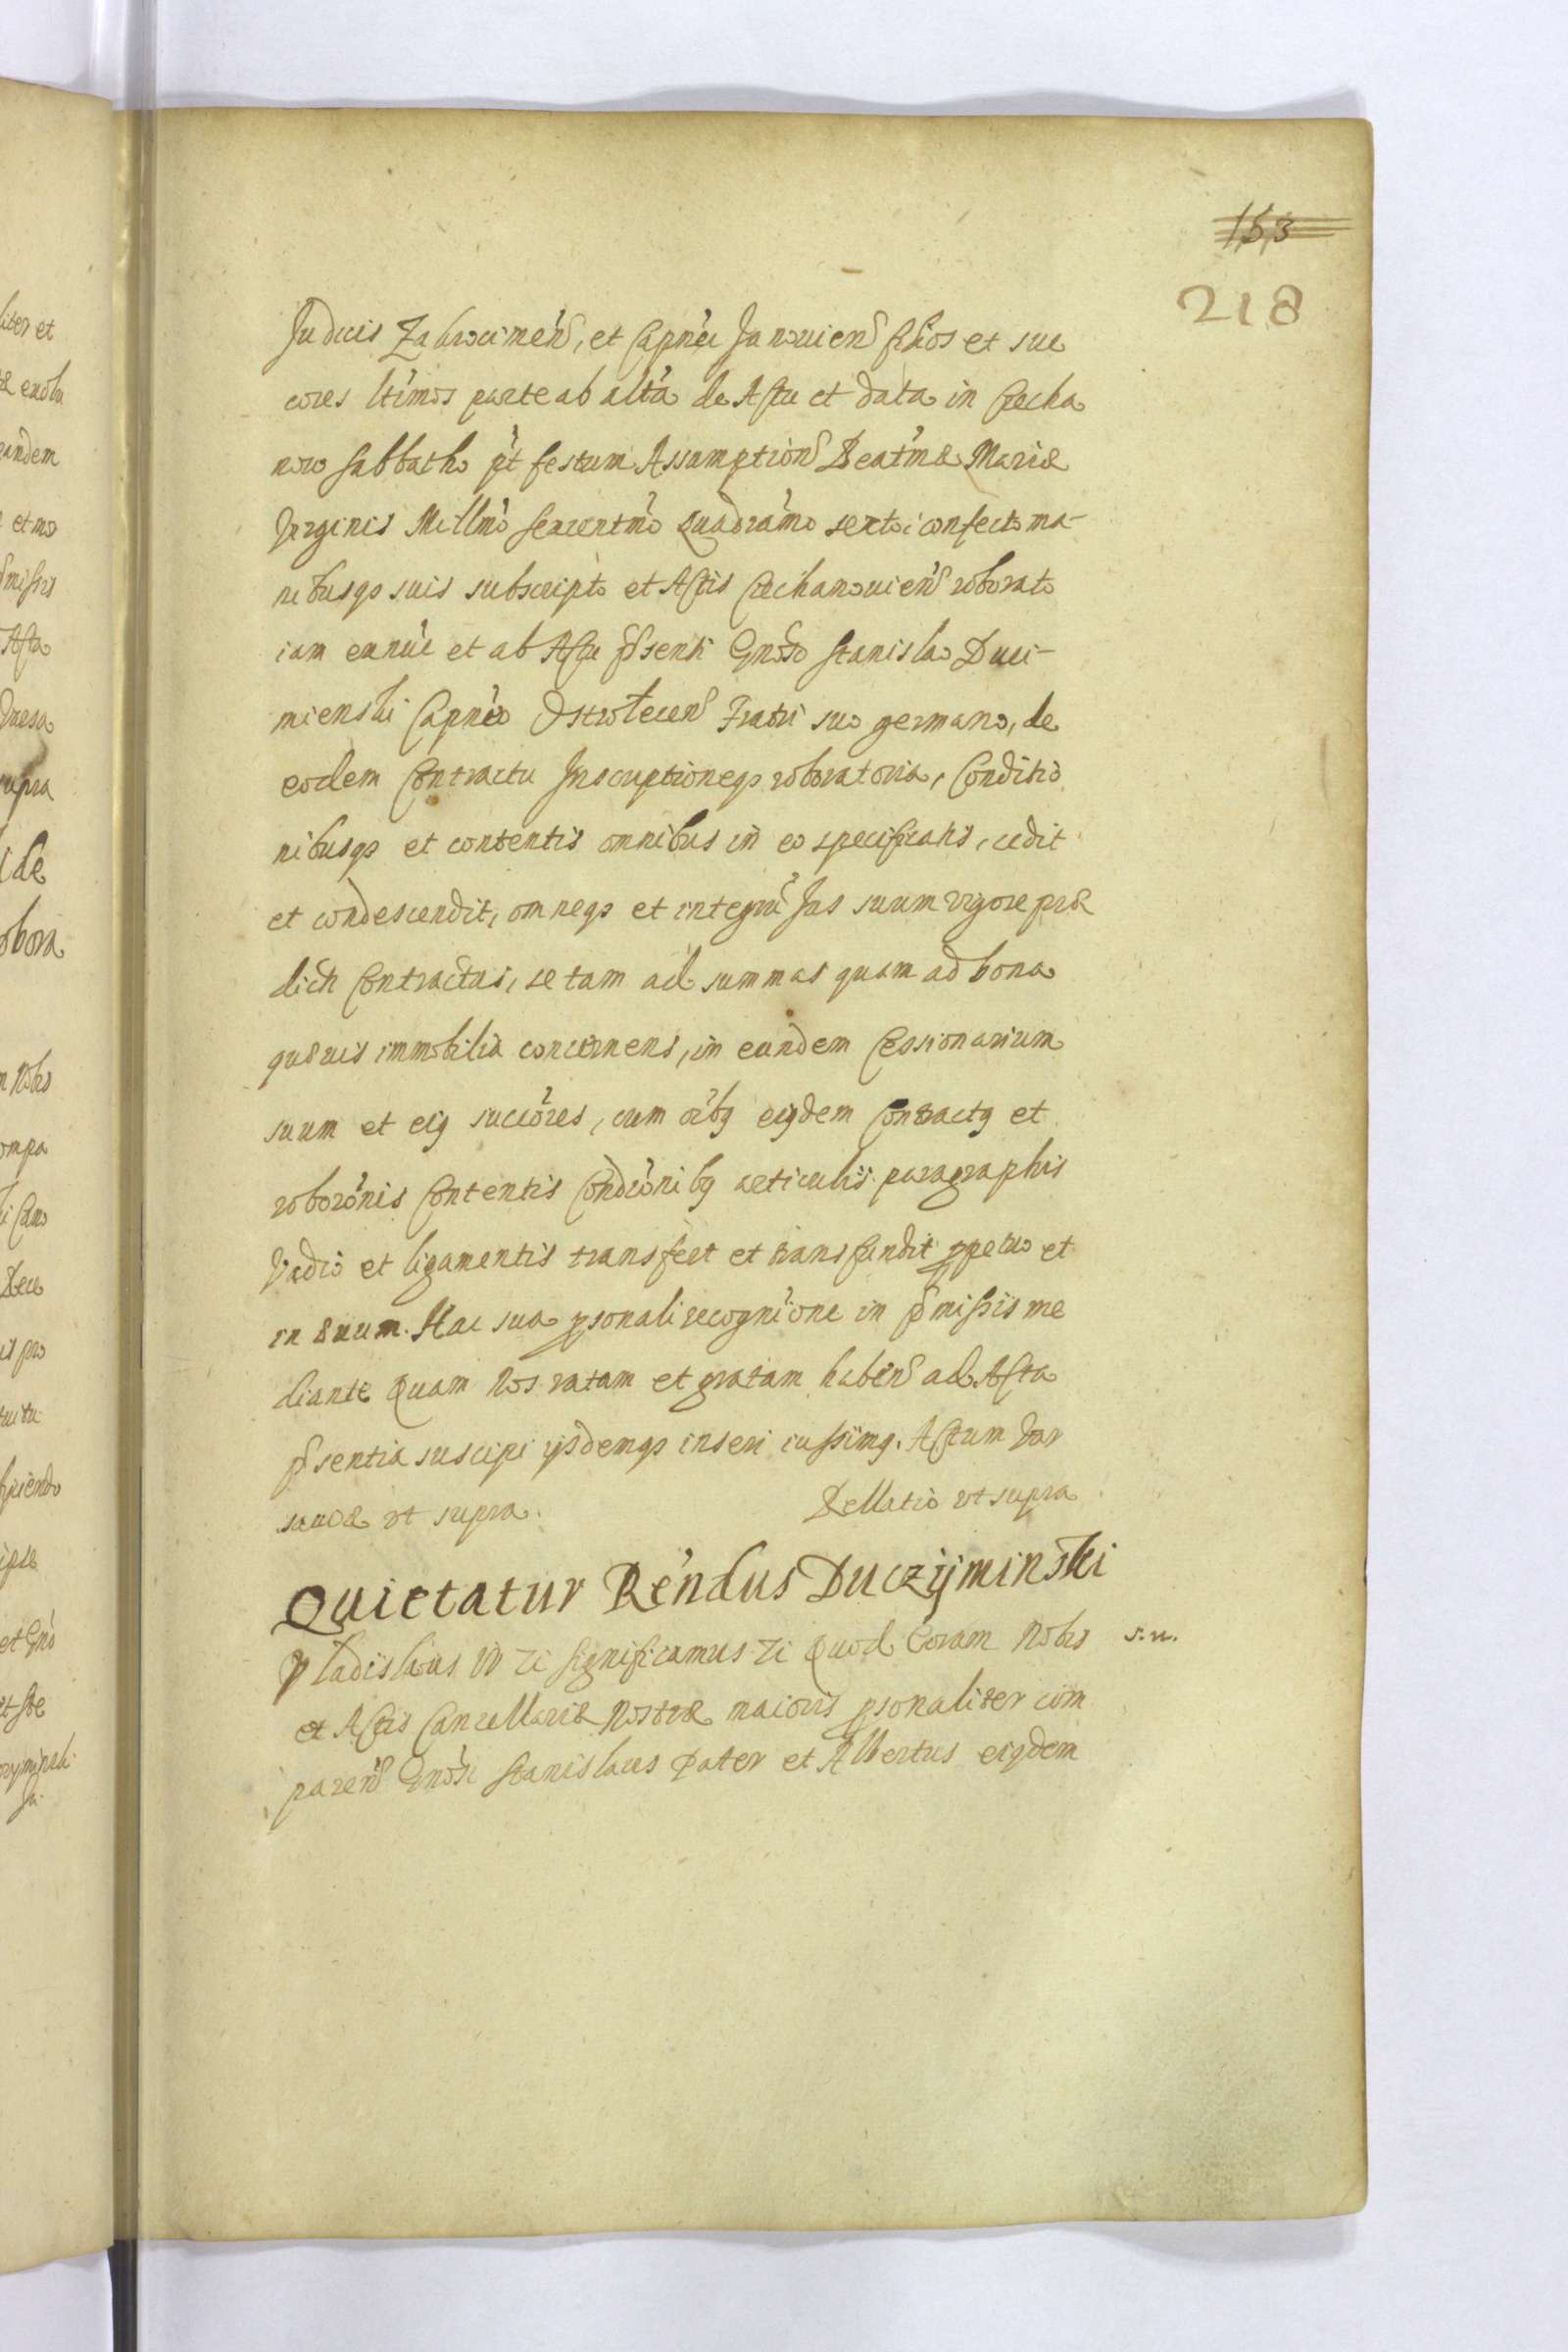 153
218
Judicis Zakrocimen̄, et Capnei Janovien̄ filios et suc
cores ltimos parte ab altã de Actu et data in Ciecha
now Sabbatho pt festum Assumption̄ Beatmæ Mariæ
Virginis Millmo sexcentmo quadragmo sexto confecto ma-
nibusqʒ suis subscripto et Actis Ciechanovien̄ roborato
iam ex nuc et ab Actu p̃senti Gnoso Stanislao Duci-
mienski Capneo Ostrolecen̄ Fratri suo germano, de
eodem Contractu Inscriptioneqʒ roboratoria, Conditio
nibusqʒ et contentis omnibus in eo specificatis, cedit
et condescendit, omneqʒ et integrũ Jus suum vigore præ
dicti Contractus, se tam ad summas quam ad bona
quævis immobilia concernens, in eundem Cessionarium
suum et eiꝰ succores, cum oĩbꝰ eiꝰdem Contractꝰ et
roboronis Contentis Condronibꝰ articulis paragraphis
Vadio et ligamentis transfert et transfundit ꝑpetuo et
in ævum. Hac sua ꝑsonali recognione in p̃missis me
diante Quam Nos ratam et gratam haben̄ ad Acta
p̃sentia suscipi ijsdemqʒ inseri iussimꝰ. Actum Var
saviæ ut supra. Rellatio ut supra
Quietatur Rendus Duczÿminski
Vladislaus IV Zc Significamus Zc Quod Coram Nobis s.n.
et Actis Cancellariæ Nostræ maioris ꝑsonaliter com
paren̄ Gnosi Stanislaus Pater et Albertus eiꝰdem
liter et
eandem
et mo
Acta
supra
de
obora
Nobis
ompa
pro
ipse